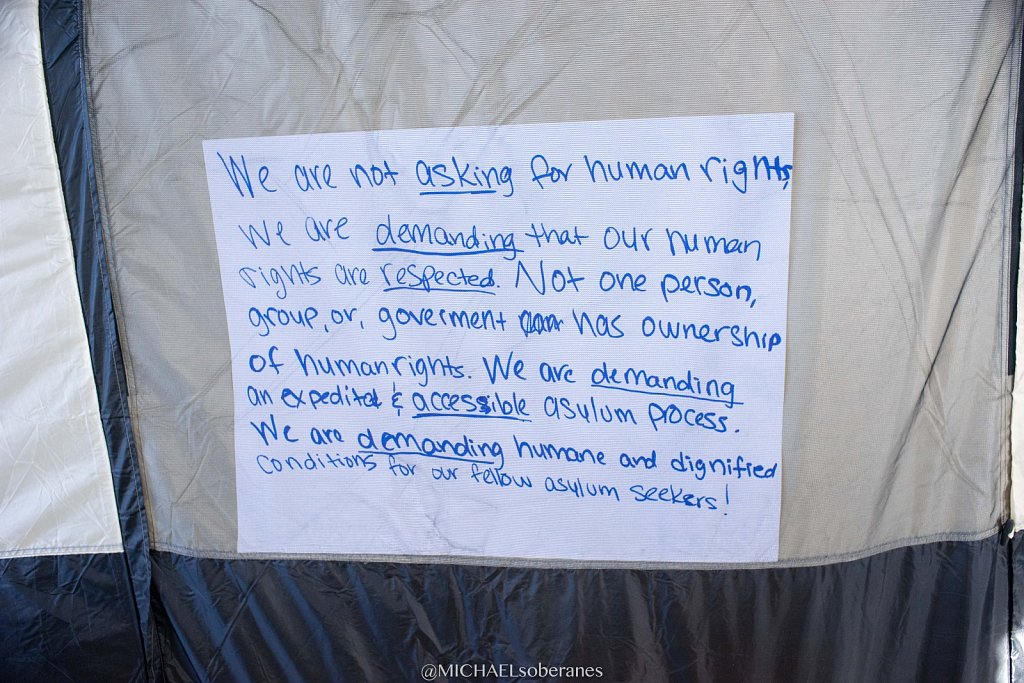 We are not asking for human rights,
we are demanding that our human
rights are respected. Not one person,
group, or, goverment has ownership
of human rights. We are demanding
an expedited & accessible asylum process.
We are demanding humane and dignified
conditions for our fellow asylum seekers!
@MICHAELsoberanes